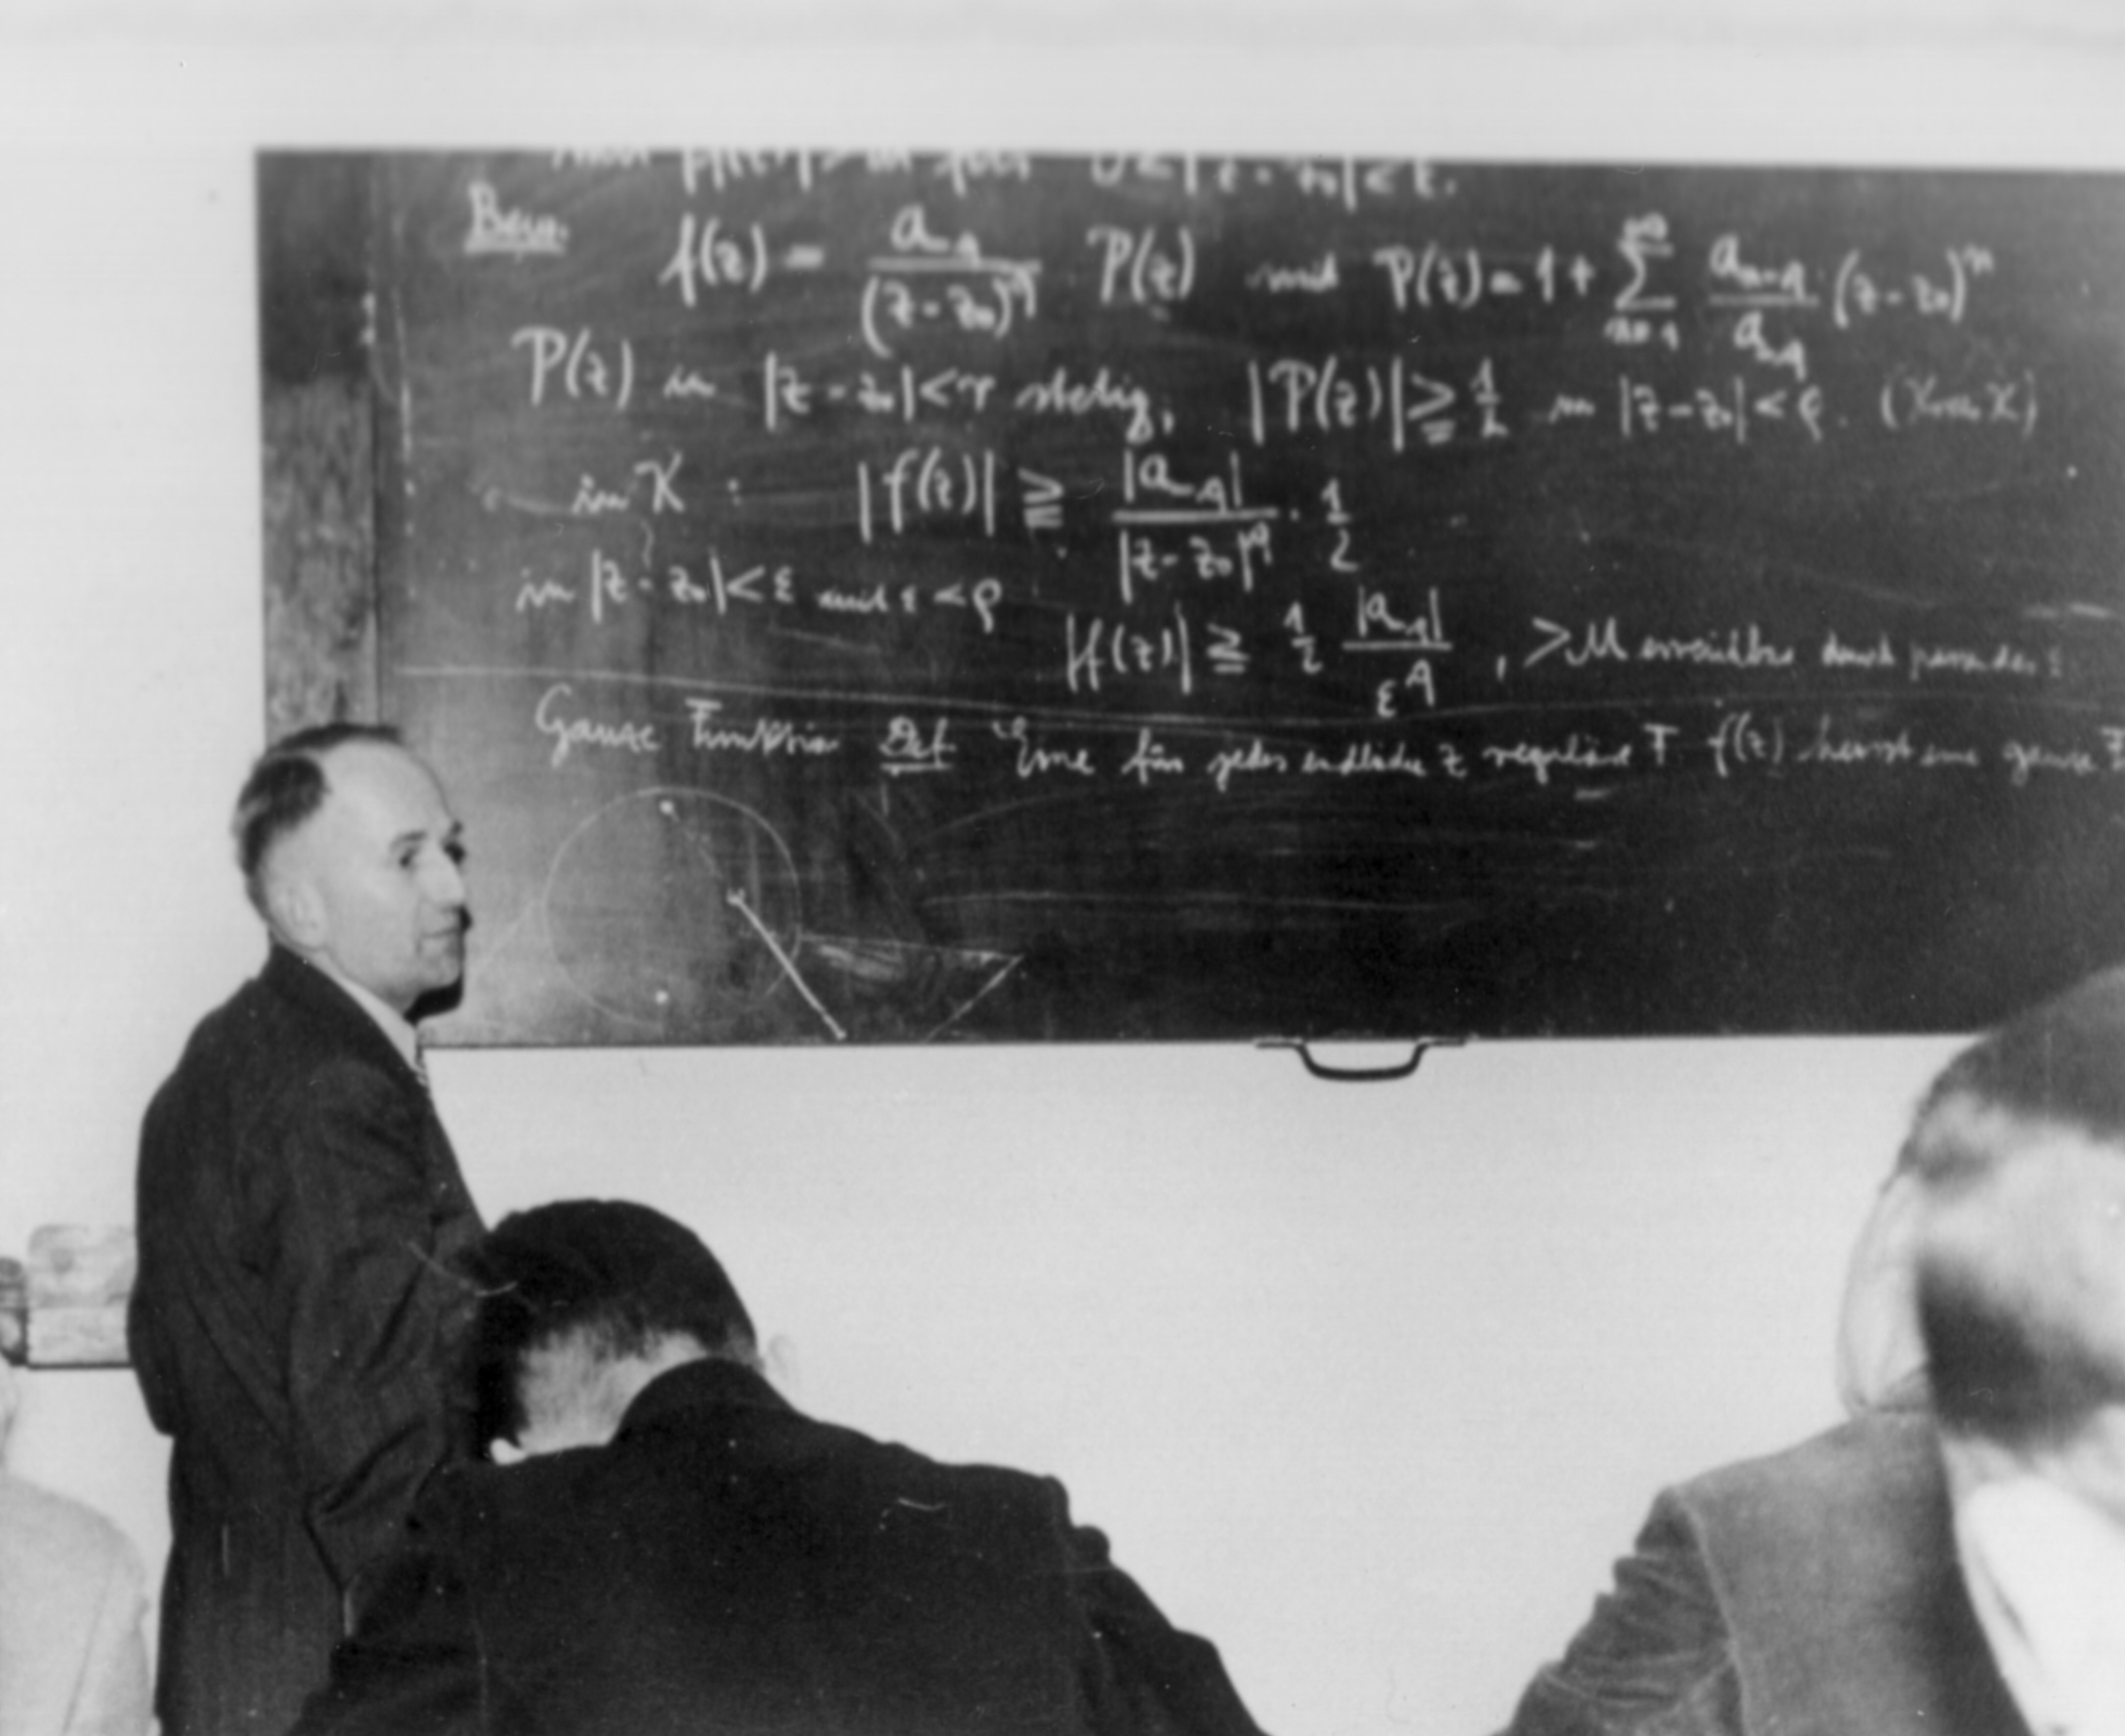 für 0 < |z - z₀| < ε.
Bew. f(z) = a₋q / (z - z₀)^q P(z) mit P(z) = 1 + ∑_{n=1}^∞ a_{n-q} / a₋q (z - z₀)^n
P(z) in |z - z₀| < r stetig, |P(z)| ≧ 1/2 in |z - z₀| < ρ. (Kreis K)
in K : |f(z)| ≧ |a₋q| / |z - z₀|^q · 1/2
in |z - z₀| < ε mit ε < ρ
|f(z)| ≧ 1/2 |a₋q| / ε^q , > M erreichbar durch passendes ε
Ganze Funktion Def. Eine für jedes endliche z reguläre F. f(z) heisst eine ganze F